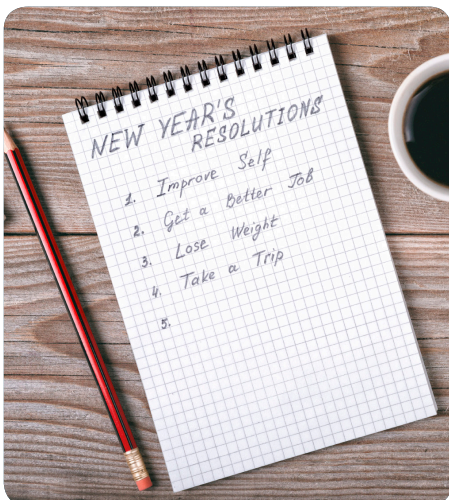 NEW YEAR'S
RESOLUTIONS
1. Improve Self
2. Get a Better Job
3. Lose Weight
4. Take a Trip
5.